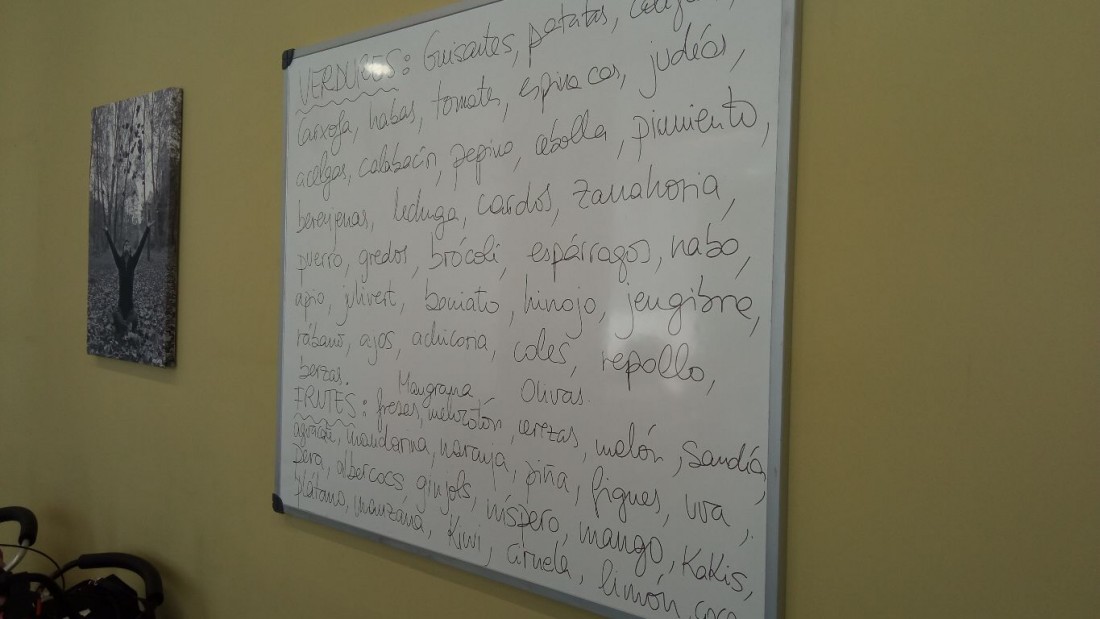 VERDURES: Guisantes, patatas,
Carxofa, habas, tomates, espinacas, judías,
acelgas, calabacín, pepino, cebolla, pimiento,
berenjenas, lechuga, cardos, zanahoria,
puerro, gredos, brócoli, espárragos, nabo,
apio, julivert, boniato, hinojo, jengibre,
rábano, ajos, achicoria, coles, repollo,
berzas. Mangrana Olivas.
FRUTES: fresas, melocotón, cerezas, melón, Sandía,
mandarina, naranja, piña, figues, uva,
Pera, albercocs, ginjols, níspero, mango, Kakis,
plátano, manzana, Kiwi, Ciruela, limón, coco